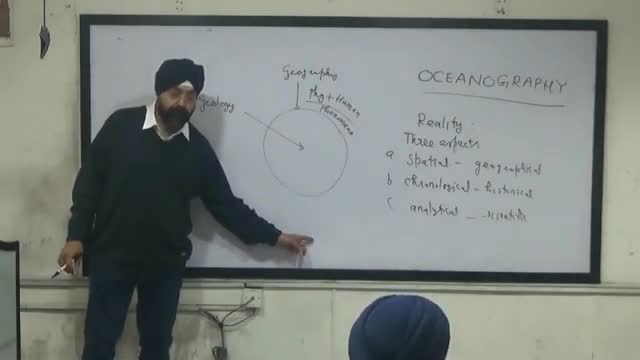 Geography
Phy + Human
Phenomena
Geology
OCEANOGRAPHY
Reality.
Three aspects
a spatial - geographical
b chronological - historical
c analytical - scientific